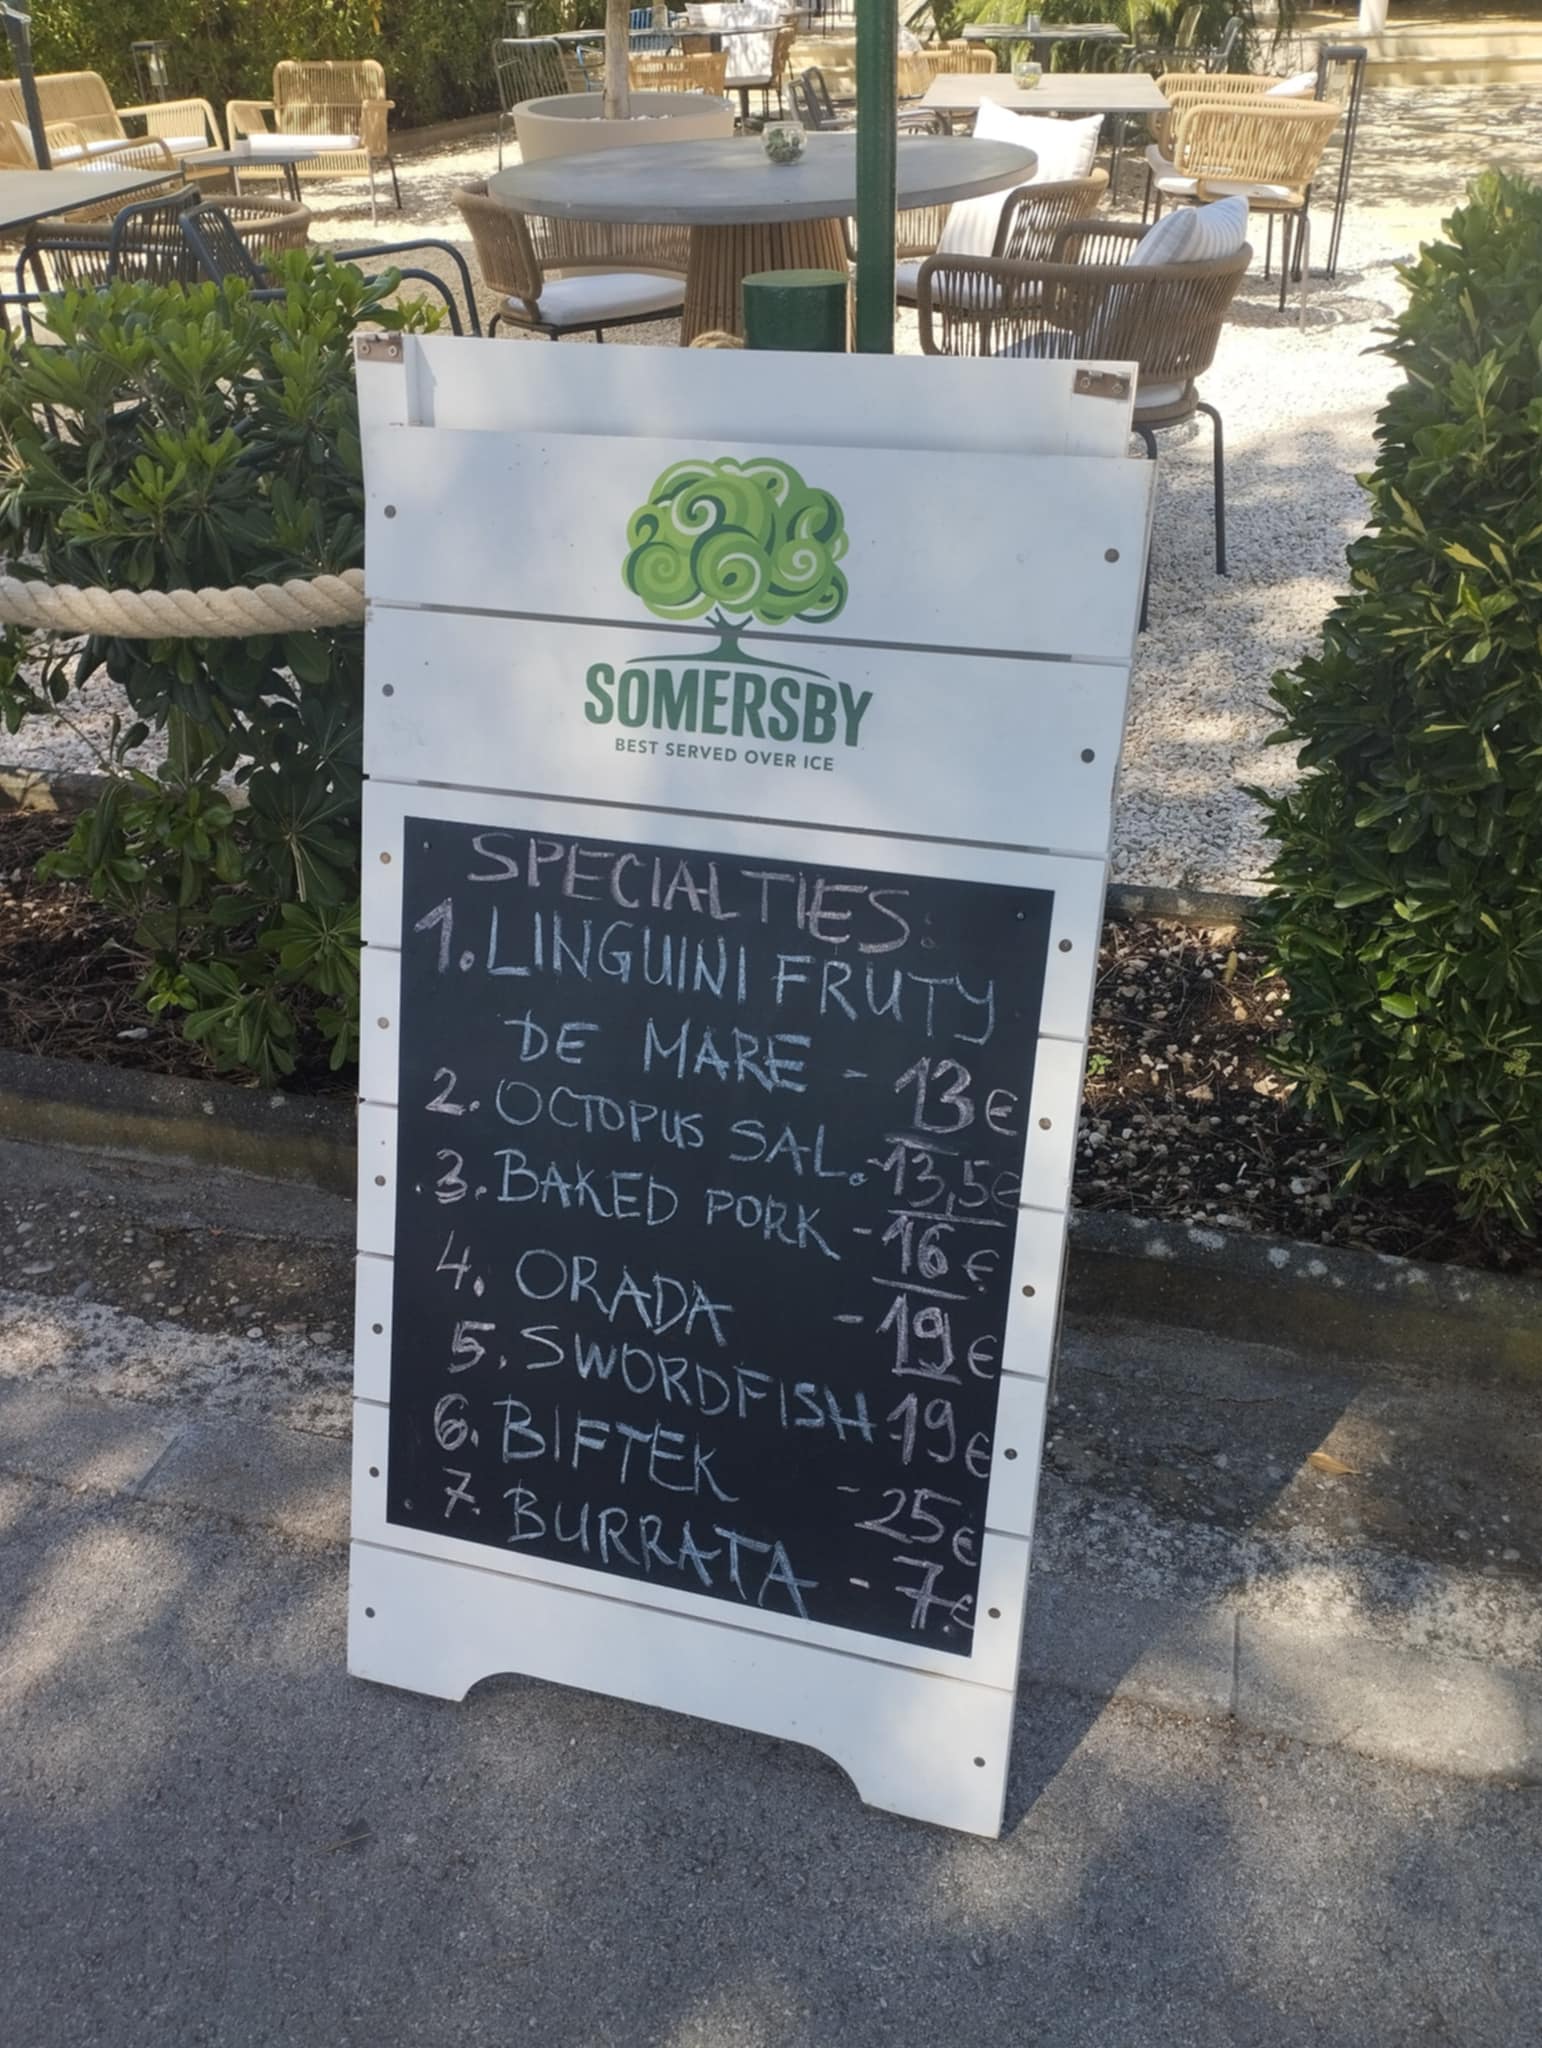 SOMERSBY
BEST SERVED OVER ICE
SPECIALTIES:
1. LINGUINI FRUTY
DE MARE - 13€
2. OCTOPUS SAL. - 13,5€
3. BAKED PORK - 16€
4. ORADA - 19€
5. SWORDFISH 19€
6. BIFTEK - 25€
7. BURRATA - 7€